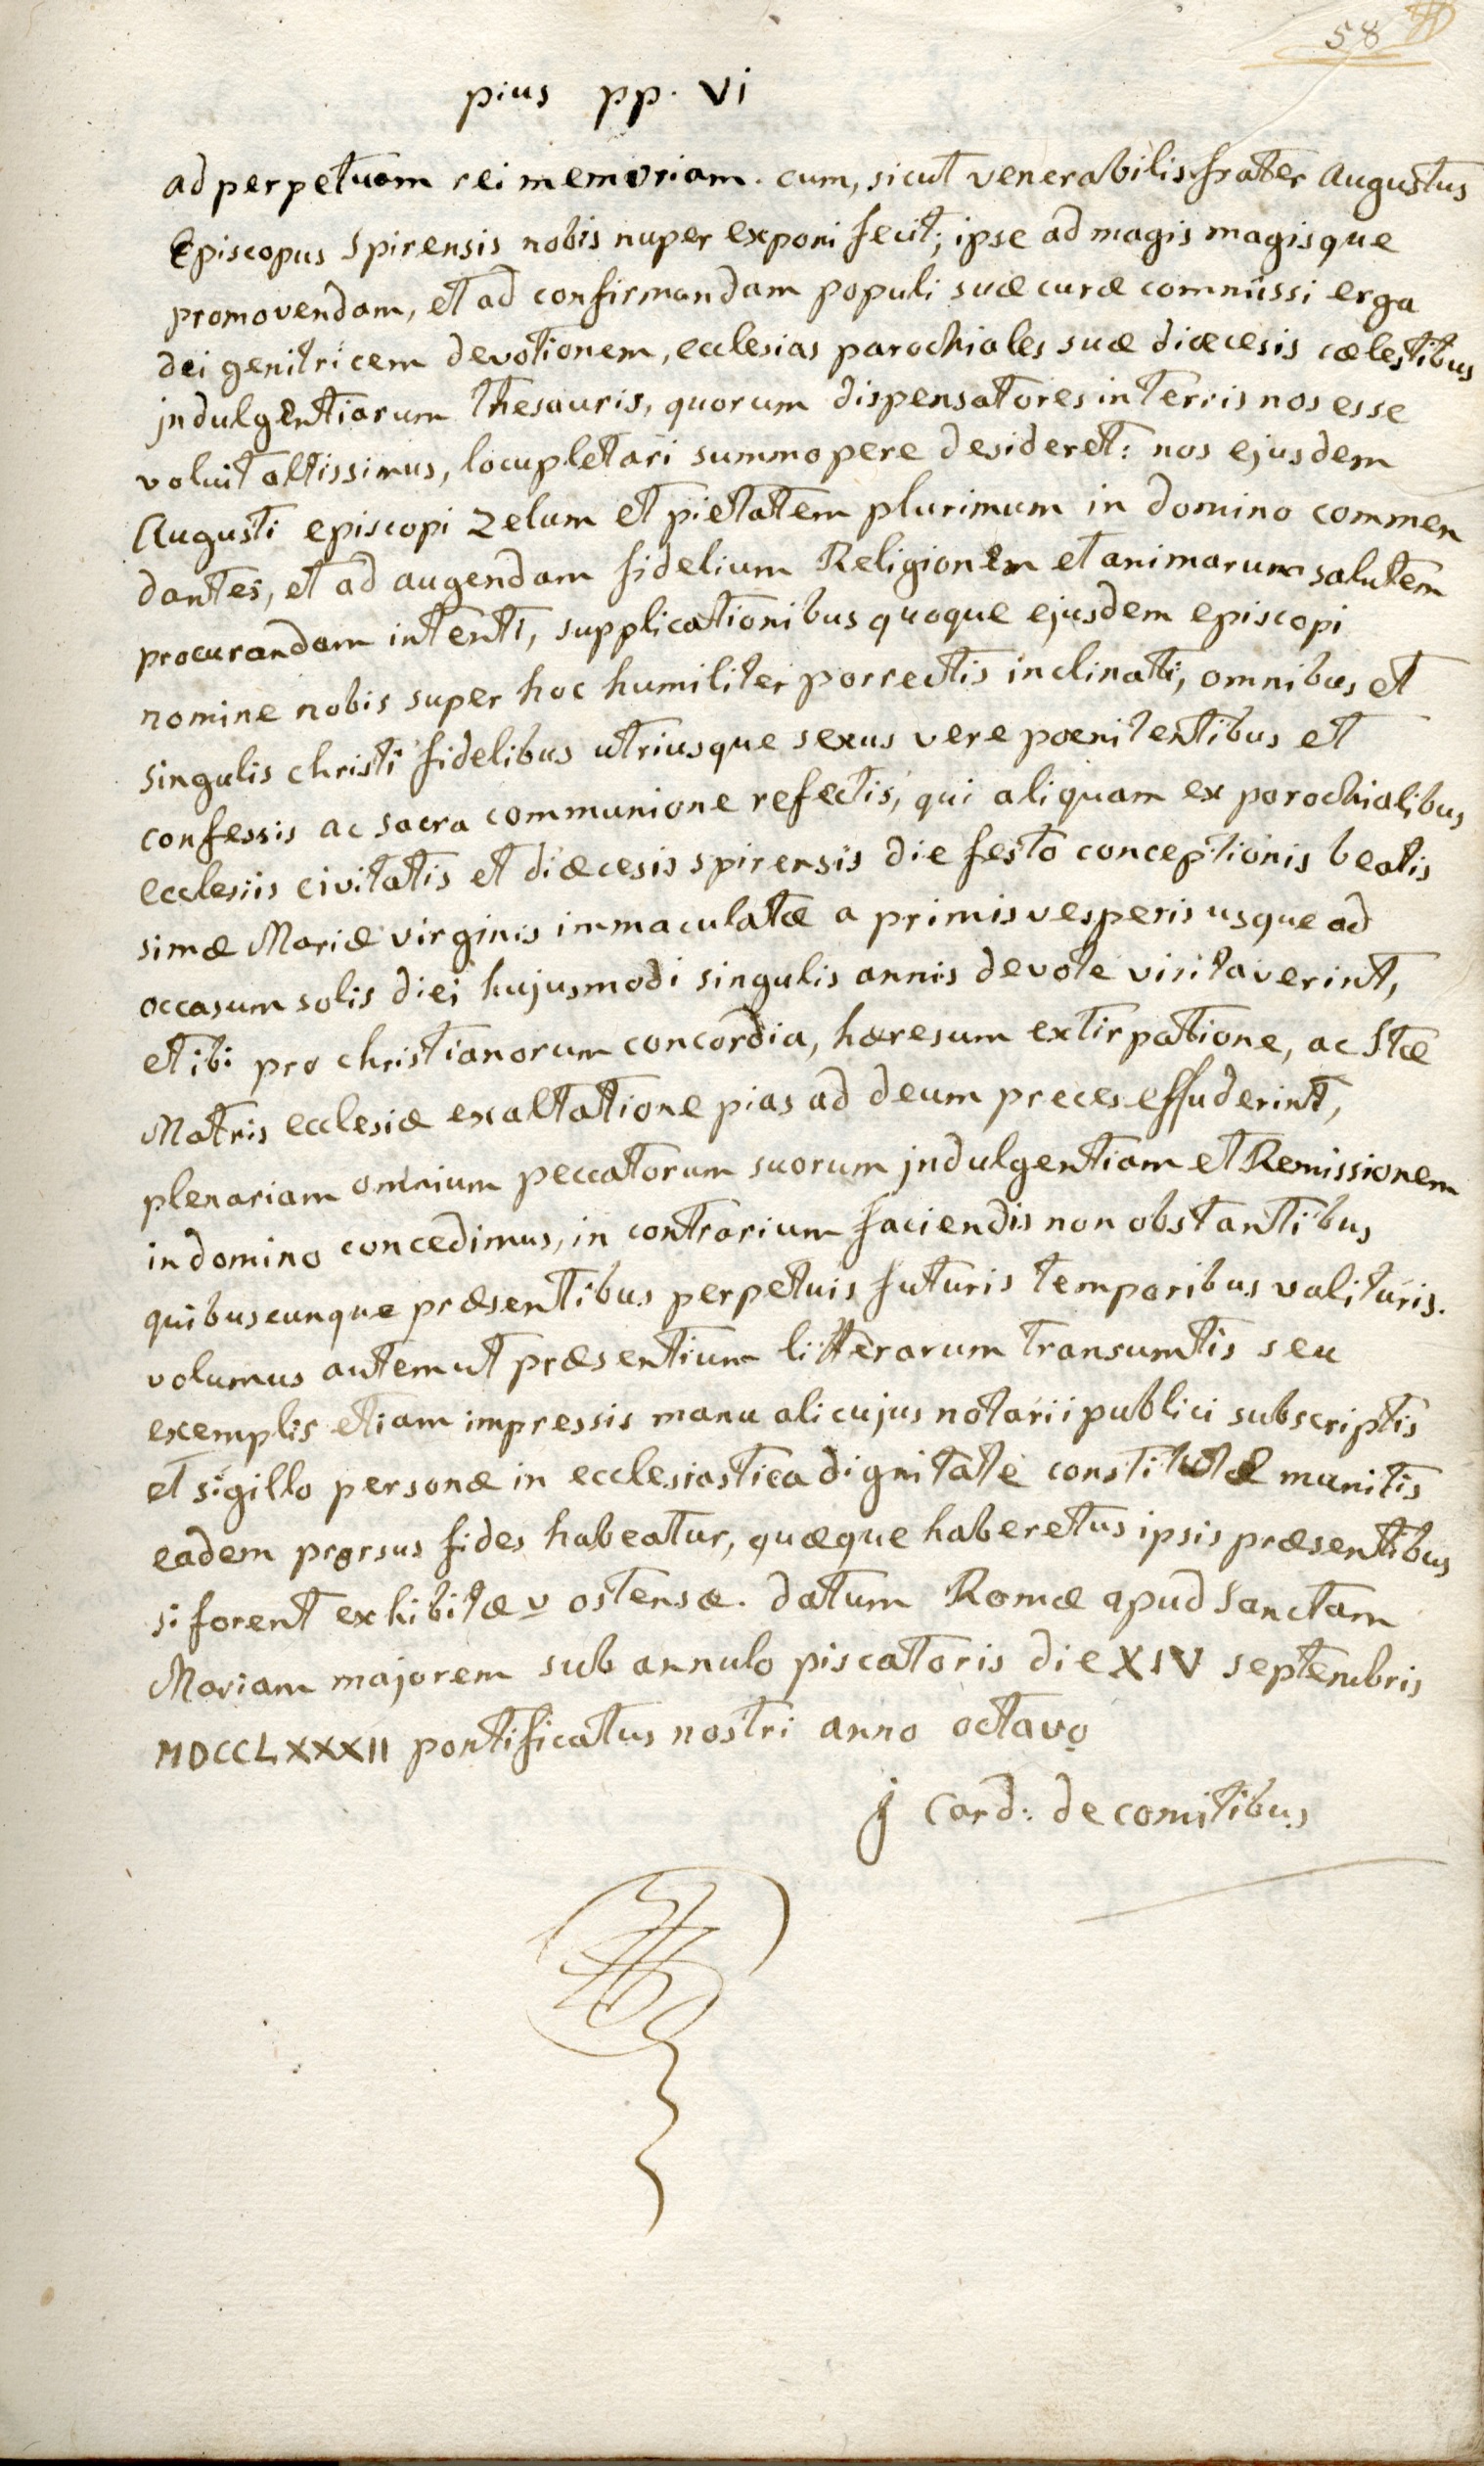 58
pius pp. vi
ad perpetuam rei memoriam. cum, sicut venerabilis frater Augustus
Episcopus Spirensis nobis nuper exponi fecit; ipse ad magis magisque
promovendam, et ad confirmandam populi suæ curæ commissi erga
dei genitricem devotionem, ecclesias parochiales suæ diæcesis cælestibus
jndulgentiarum thesauris, quorum dispensatores in terris nos esse
voluit altissimus, locupletari summopere desideret: nos ejusdem
Augusti episcopi zelum et pietatem plurimum in domino commen
dantes, et ad augendam fidelium Religionem et animarum salutem
procurandam intenti, supplicationibus quoque ejusdem episcopi
nomine nobis super hoc humiliter porrectis inclinati, omnibus et
singulis christi fidelibus utriusque sexus vere pœnitentibus et
confessis ac sacra communione refectis, qui aliquam ex parochialibus
ecclesiis civitatis et diæcesis spirensis die festo conceptionis beatis
simæ Mariæ virginis immaculatæ a primis vesperis usque ad
occasum solis diei hujusmodi singulis annis devote visitaverint,
et ibi pro christianorum concordia, hæresum extirpatione, ac Stæ
Matris ecclesiæ exaltatione pias ad deum preces effuderint,
plenariam omnium peccatorum suorum jndulgentiam et Remissionem
in domino concedimus, in contrarium faciendis non obstantibus
quibuscunque præsentibus perpetuis futuris temporibus valituris.
volumus autem ut præsentium litterarum transumtis seu
exemplis etiam impressis manu alicujus notarii publici subscriptis
et sigillo personæ in ecclesiastica dignitate constitutæ munitis
eadem prorsus fides habeatur, quæque haberetus ipsis præsentibus
si forent exhibitæ v ostensæ. datum Romæ apud Sanctam
Mariam majorem sub annulo piscatoris die XIV septembris
MDCCLXXXII pontificatus nostri anno octavo
j Card: de comitibus